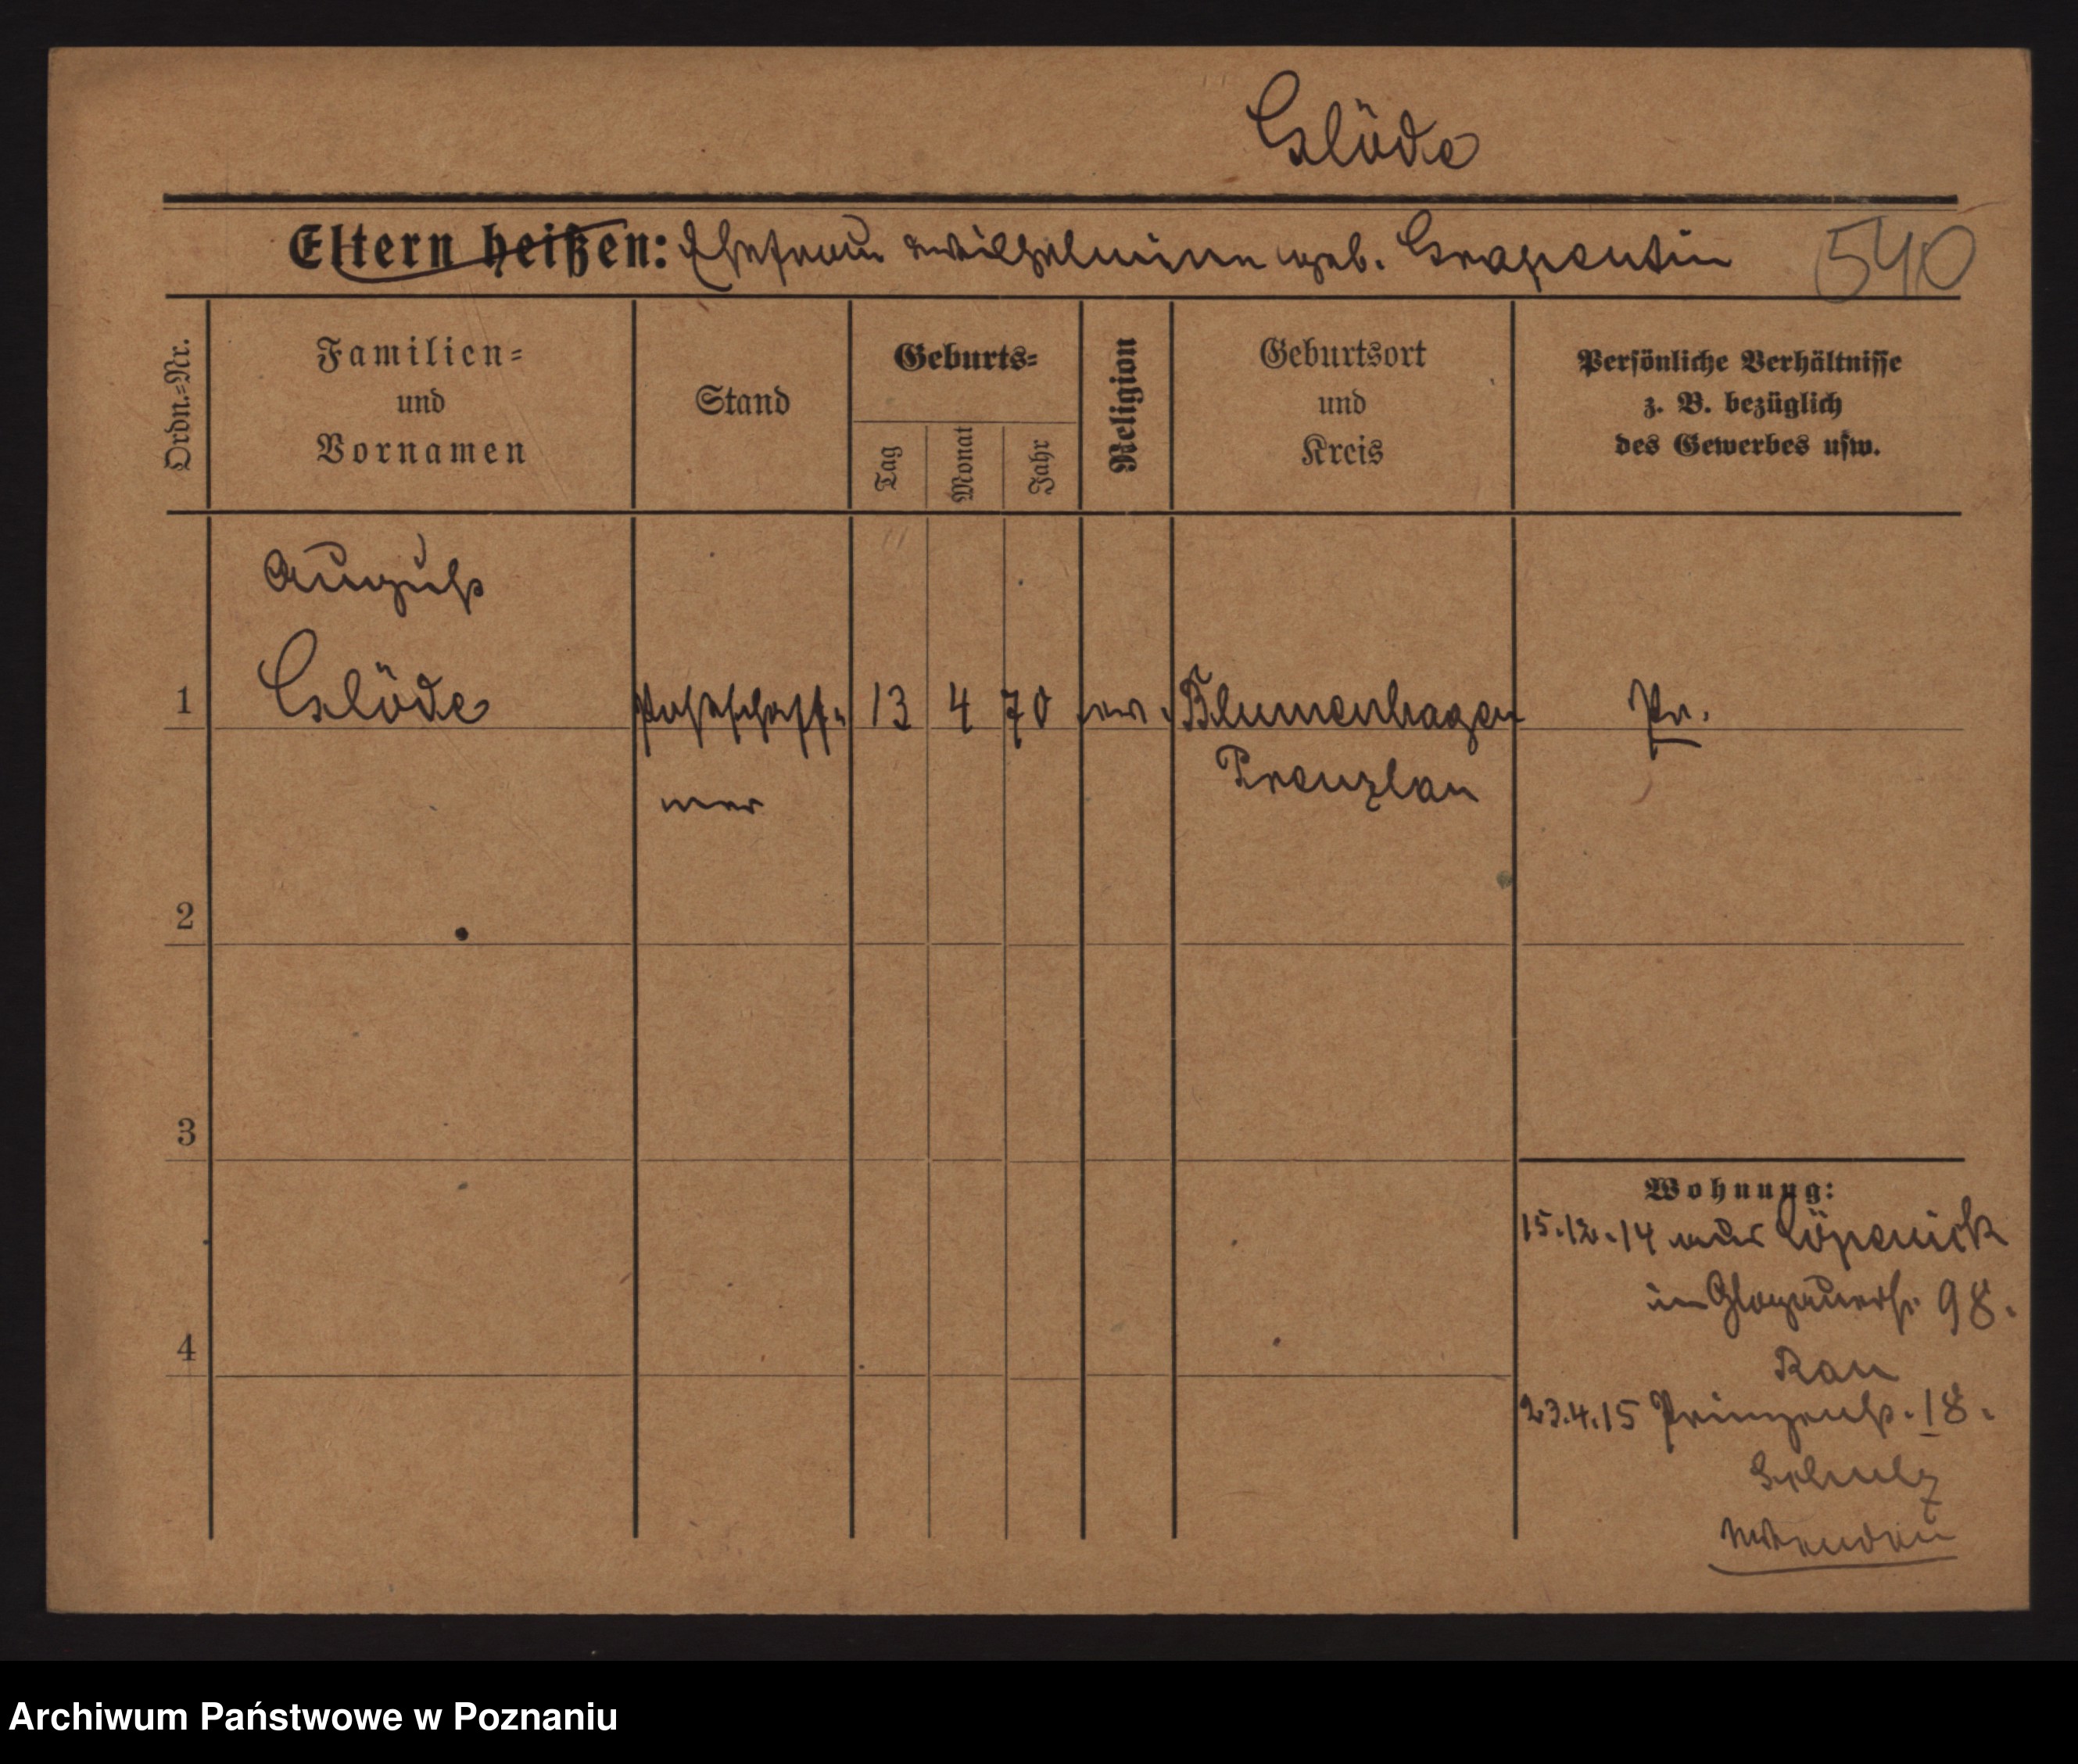 Glöde
Eltern heißen: Ehefrau Wilhelmine geb. Grapentin 540
Ordn.=Nr.
Familien=
und
Vornamen
Stand
Geburts=
Tag
Monat
Jahr
Religion
Geburtsort
und
Kreis
Persönliche Verhältnisse
z. B. bezüglich
des Gewerbes usw.
August
1 Glöde Postschaff= 13 4 70 ev. Blumenhagen Pr.
ner Prenzlau
2
3
Wohnung:
15.12.14 aus Cöpenick
in Glogauerstr. 98.
Rau
4
23.4.15 Prinzenstr. 18.
Schulz
Archiwum Państwowe w Poznaniu